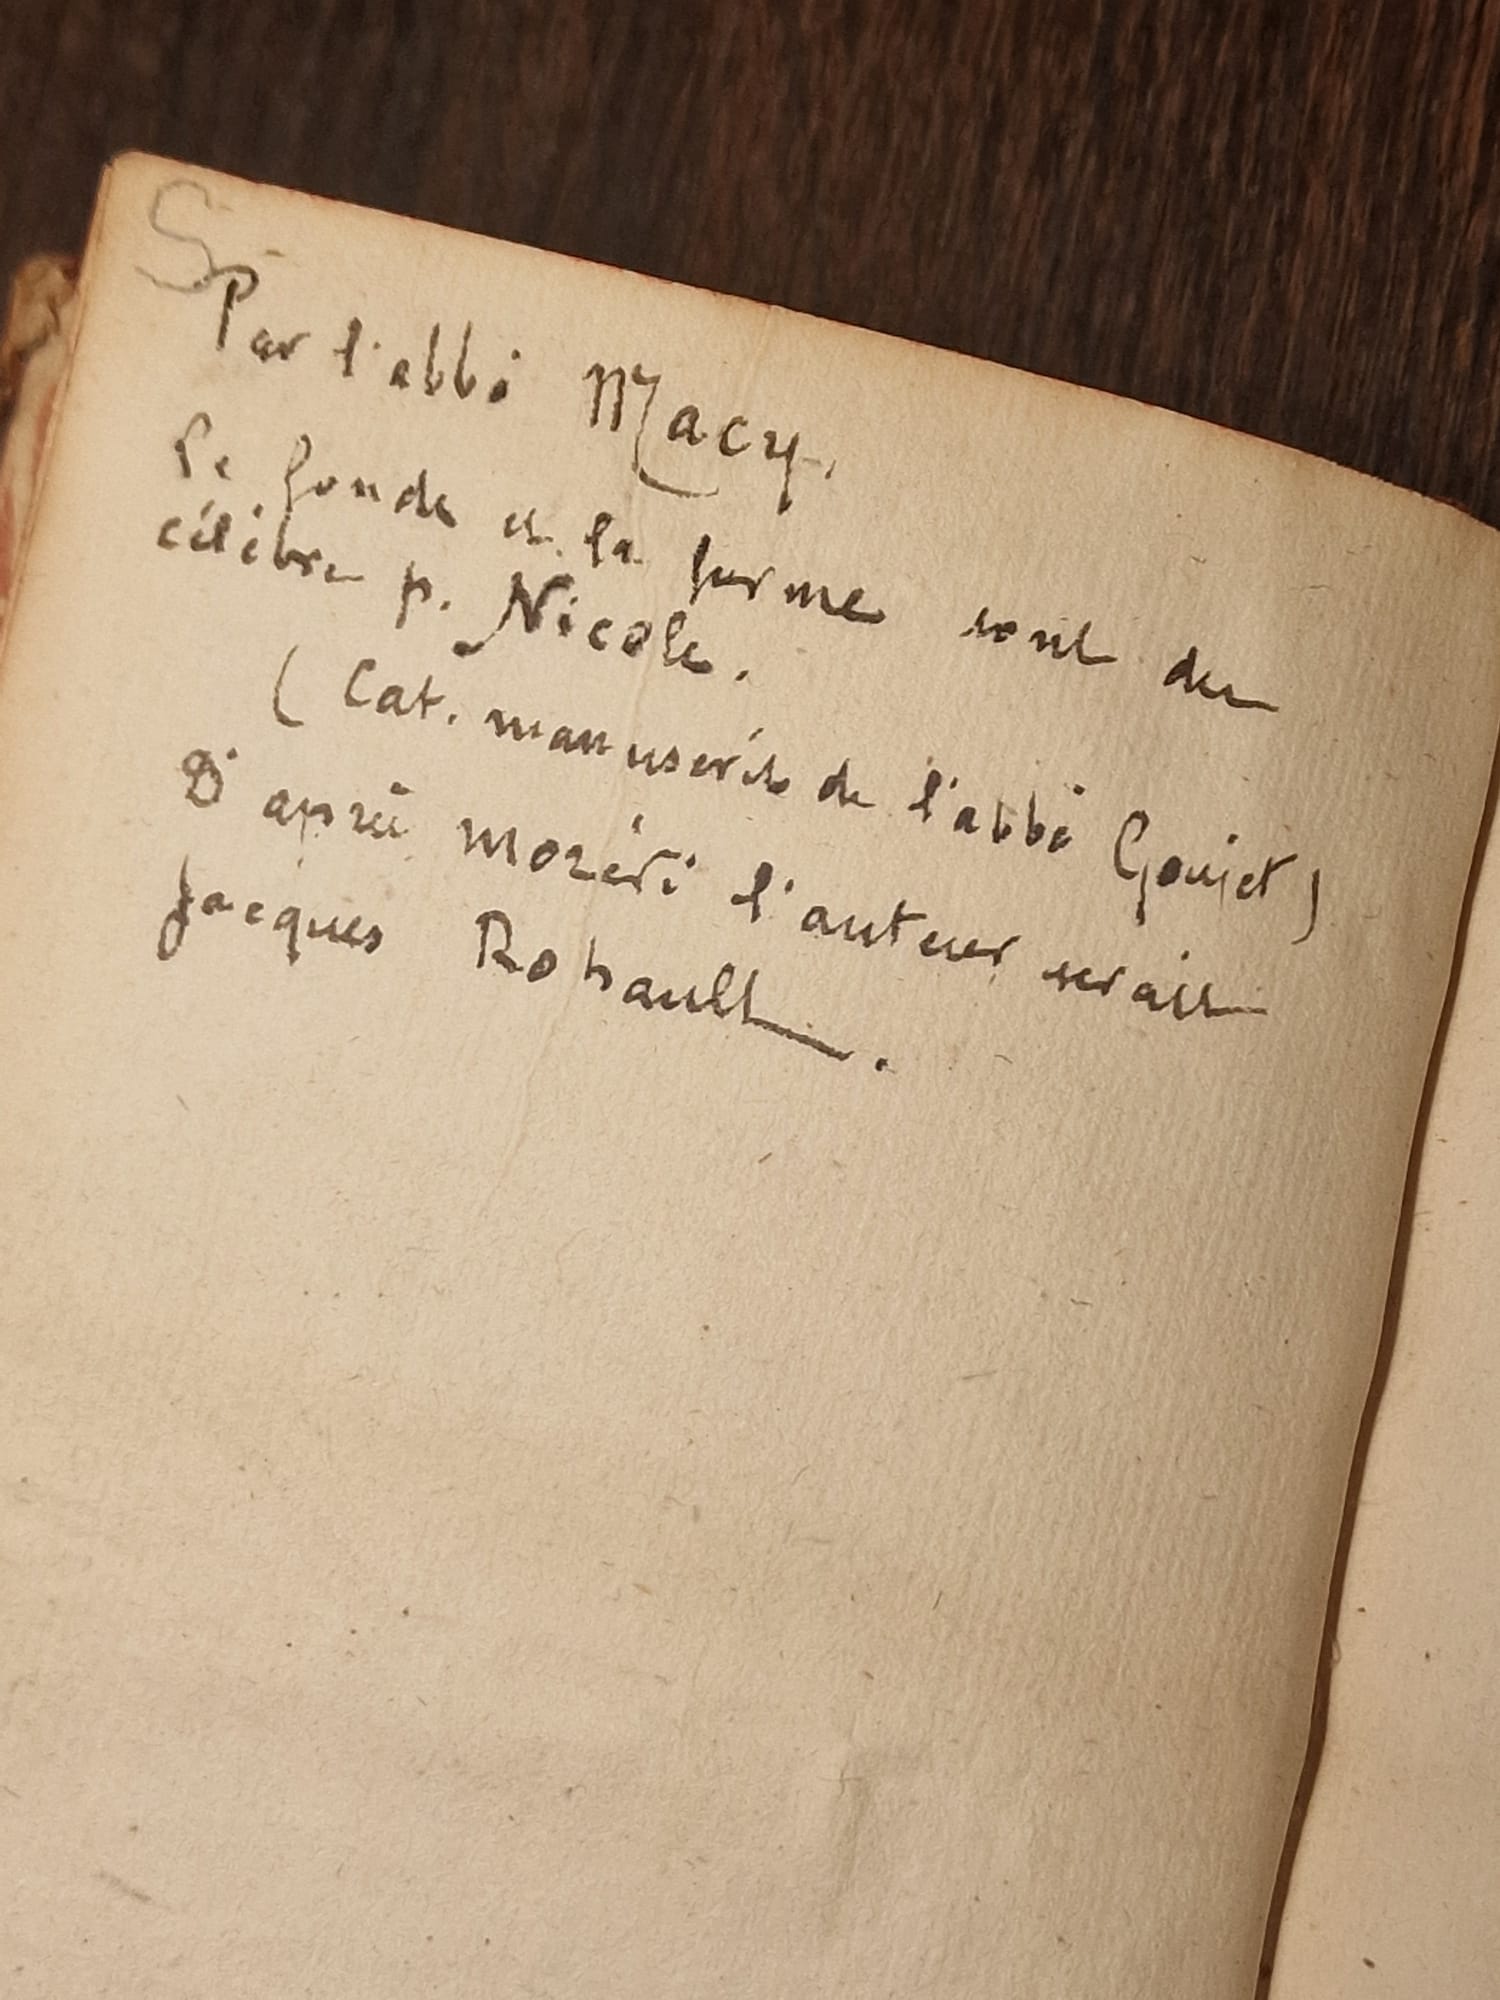 S
Par l'abbé Macy.
Le fonds et la forme sont du
célèbre p. Nicole.
( Cat. manuscrit de l'abbé Goujet )
D'après moréri l'auteur serait
Jacques Rohault.